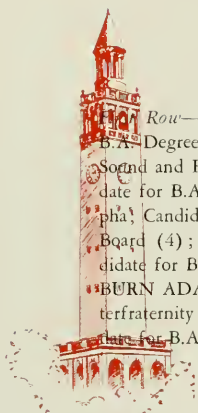 Row—
B.A. Degree
Sound and
date for B.A
pha; Candid
Board (4);
didate for B
BURN ADA
terfraternity
date for B.A